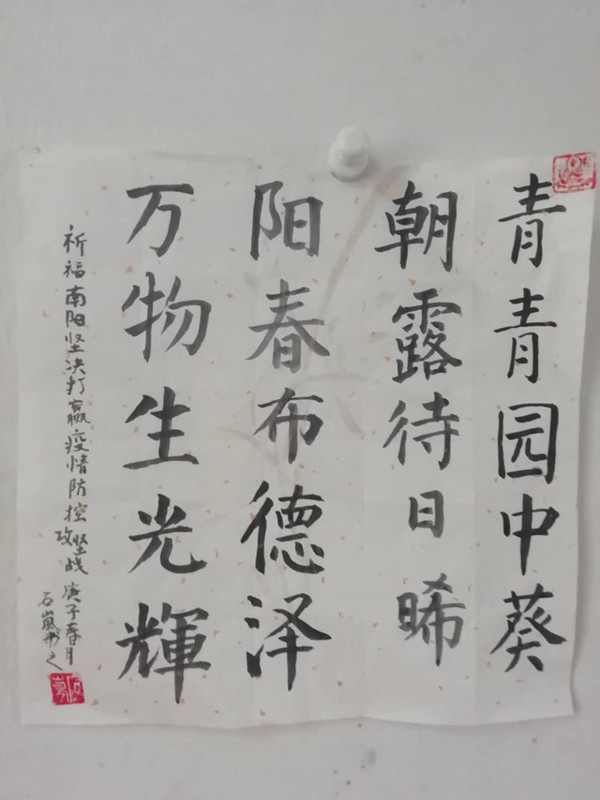 青青园中葵
朝露待日晞
阳春布德泽
万物生光輝
祈福南阳坚决打赢疫情防控攻坚战 庚子春月
石书之